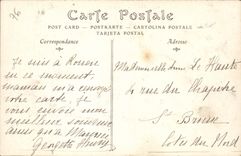 76
Carte Postale
POST CARD — POSTKARTE — CARTOLINA POSTALE
TARJETA POSTAL
Correspondance
Adresse
Je suis à Rouen
en ce moment
maman m'a envoyé
votre carte. Je
vous envoie mon
meilleur souvenir
ainsi qu'à Marguerite
Georgette
Mademoiselle
4 rue du Chapitre
St Brieuc
Côtes du Nord